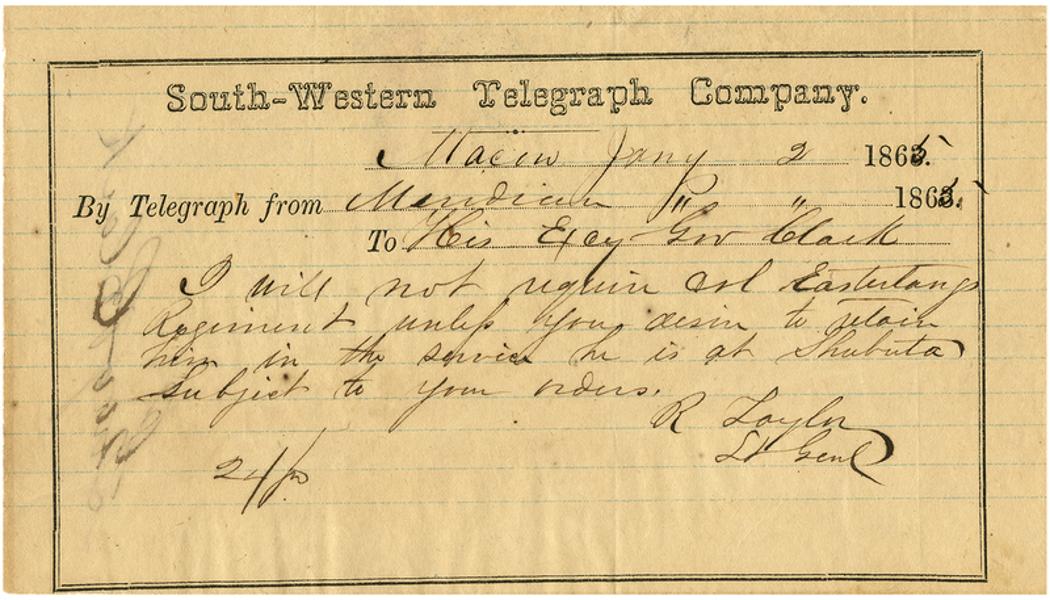 South-Western Telegraph Company.
Macon Jany 2 1865.
By Telegraph from Meridian " " 1865.
To His Excy Gov Clark
I will not require Col Easterlings
Regiment unless you desire to retain
him in the service he is at Shubuta
Subject to your orders.
R Taylor
Lt Genl